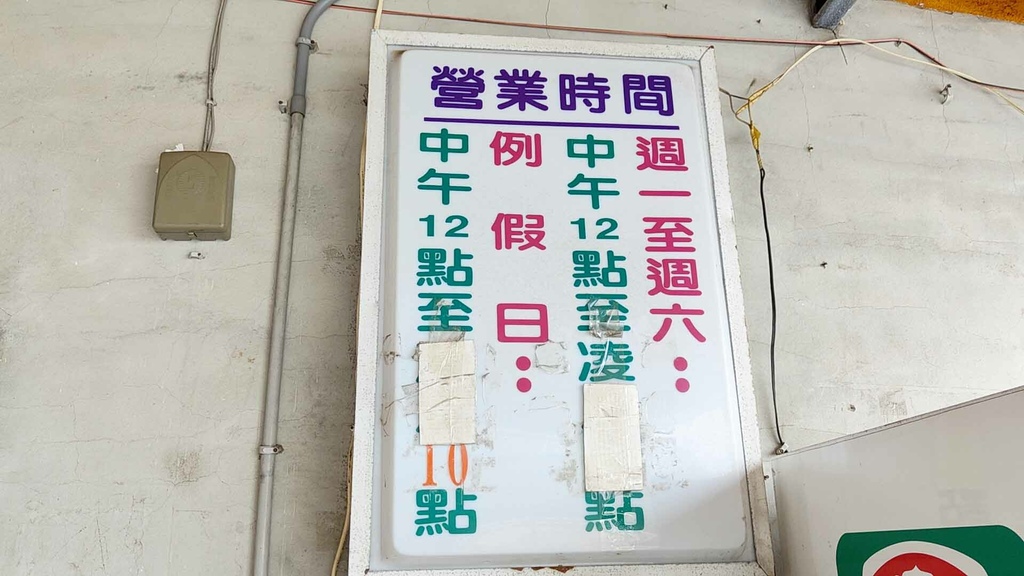 營業時間
週一至週六：
中午12點至凌
點
例假日：
中午12點至
10
點